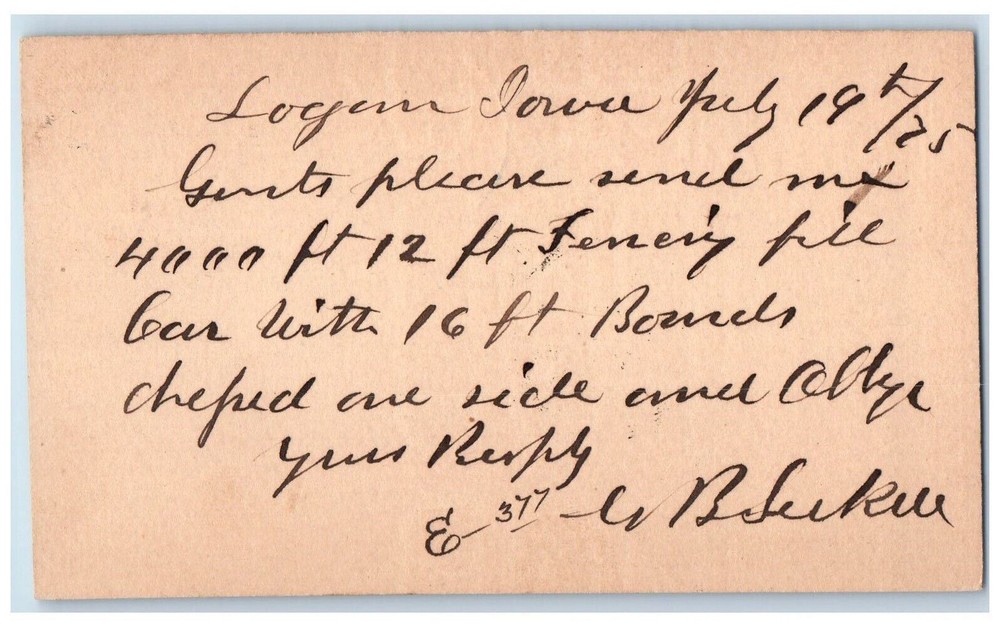 Logan Iowa July 19th/75
Gents please send me
4000 ft 12 ft Fencing fill
Car With 16 ft Boards
one side and Oblige
yours Respty
E 377 B